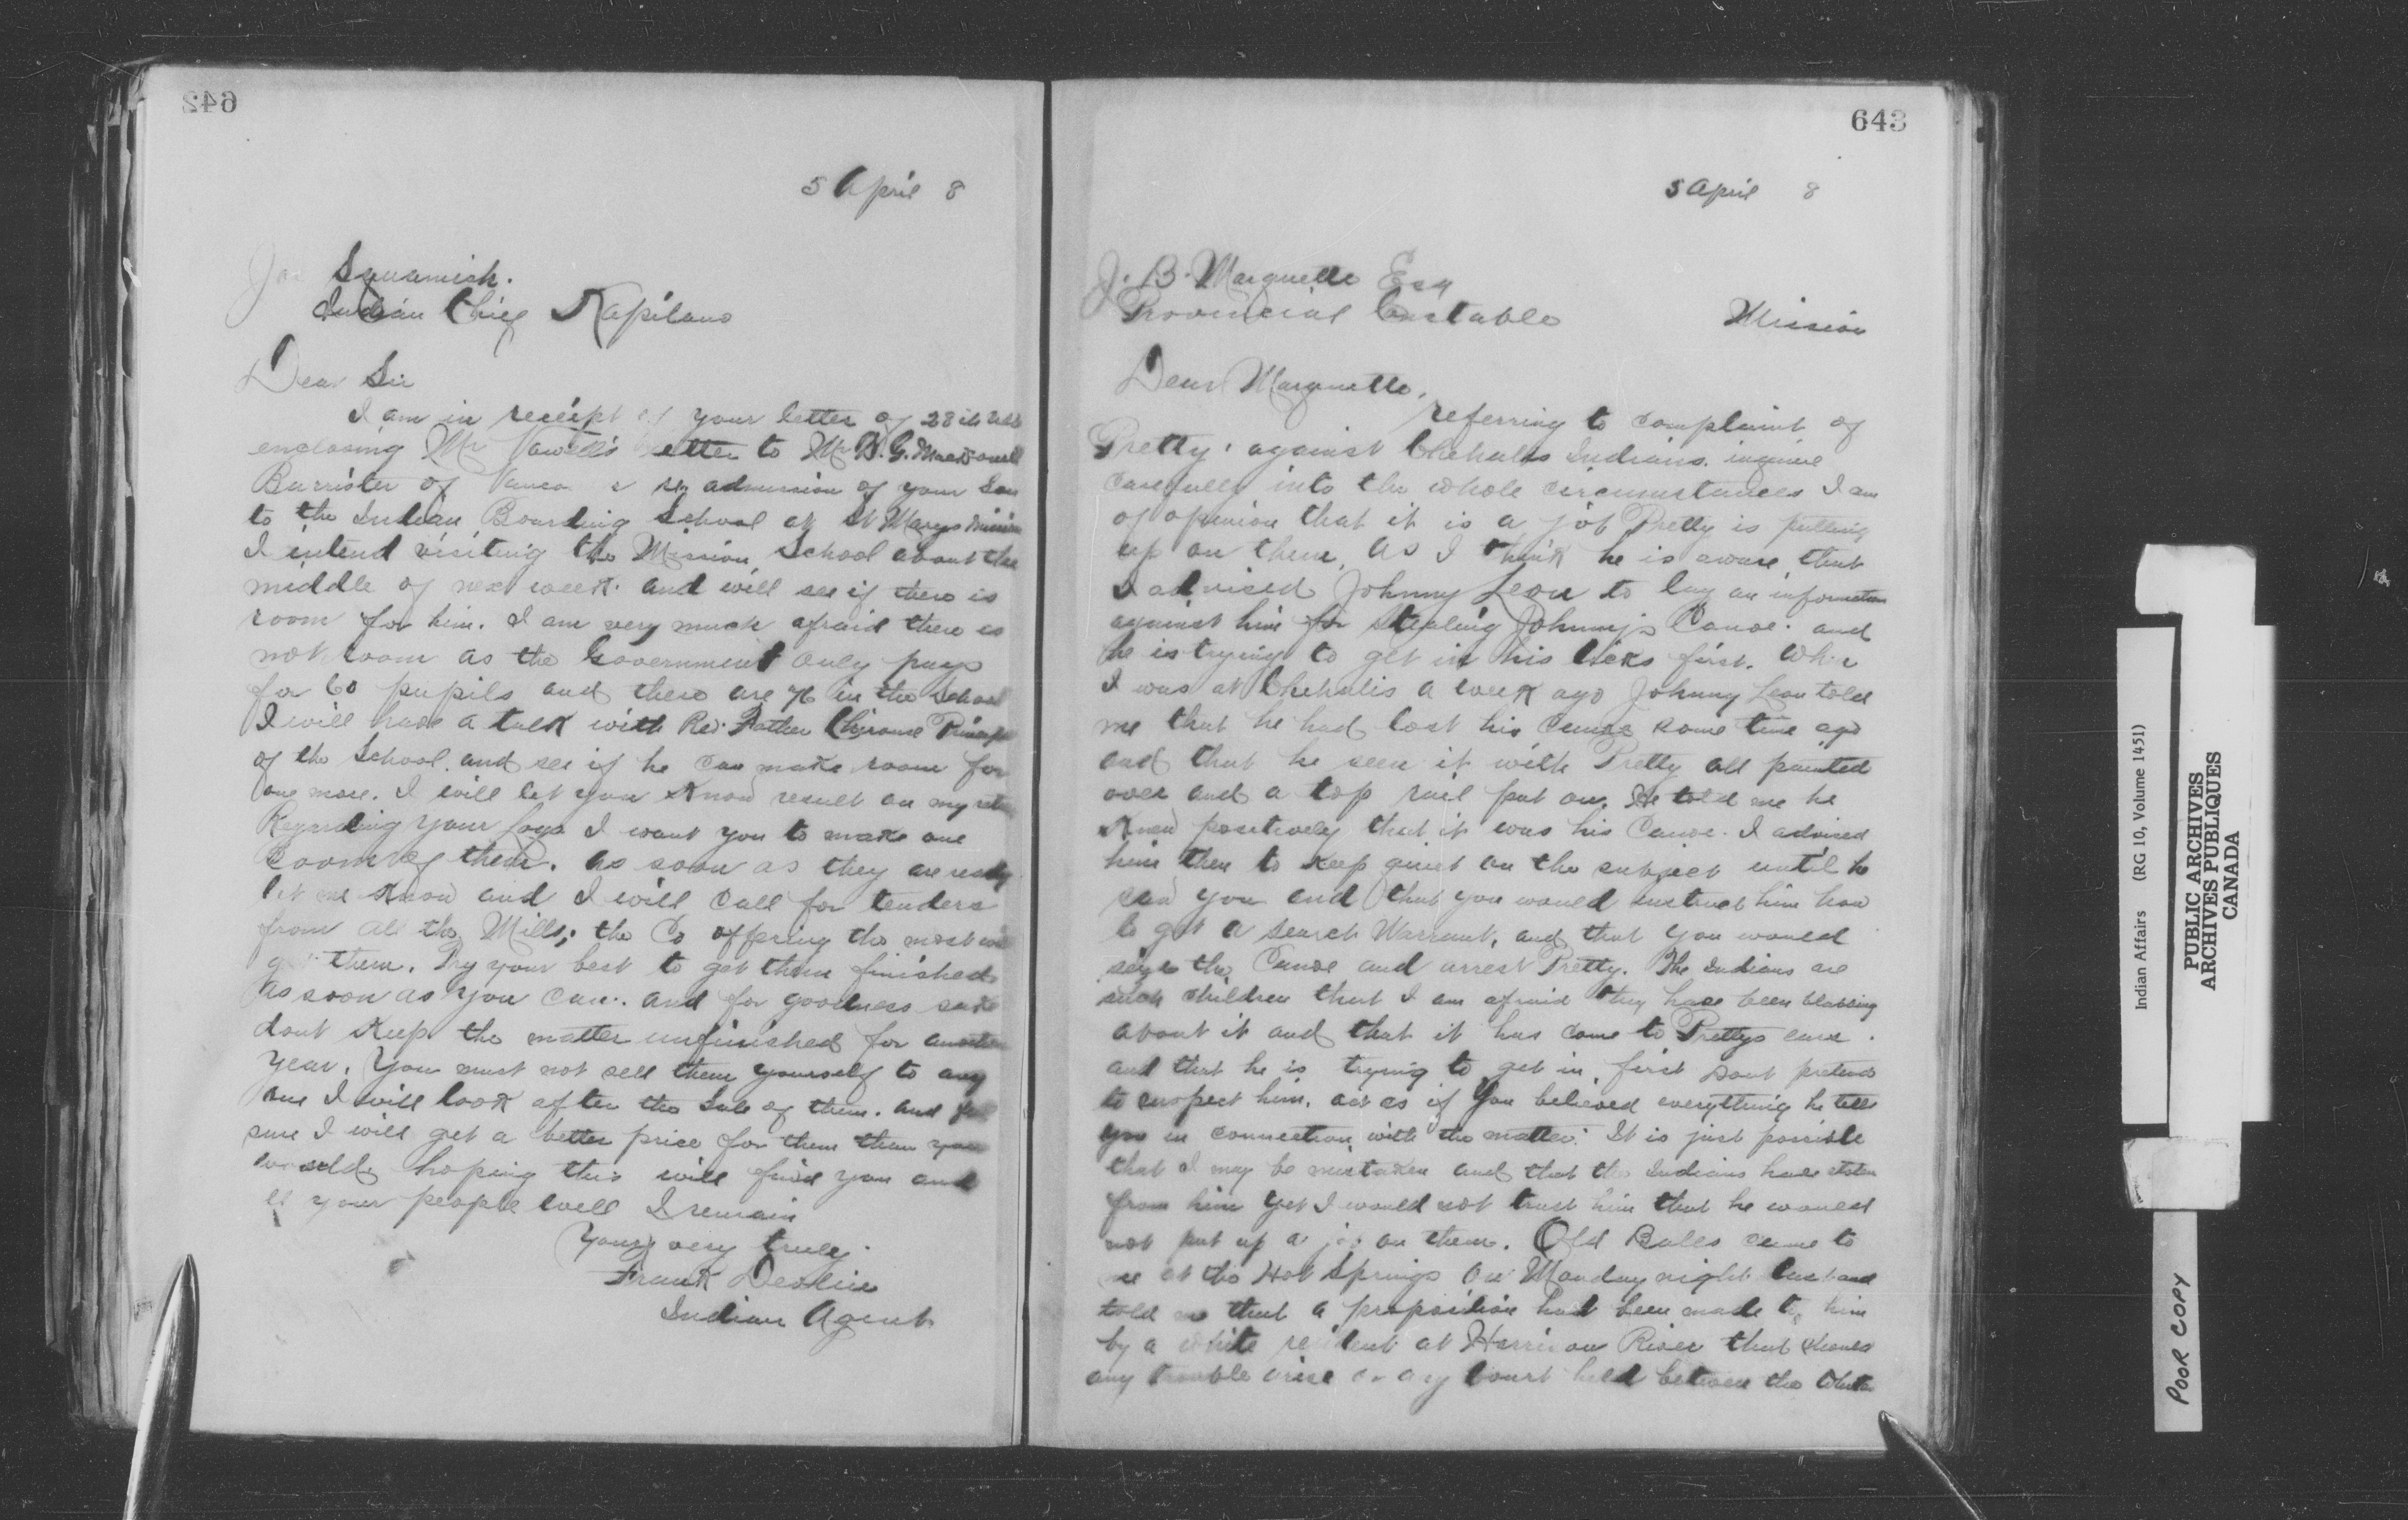 642
5 April 8
Squamish.
Indian Chief Kapilano
Dear Sir
I am in receipt of your letter of 28th ult
enclosing Mr Vowell's letter to Mr D. G. Macdonell
Barrister of re admission of your Son
to the Indian Boarding School at St Marys Mission
I intend visiting the Mission School about the
middle of next week. and will see if there is
room for him. I am very much afraid there is
not room as the Government only pays
for 60 pupils and there are 76 in the School
I will have a talk with Rev. Father Chirouse
of the School. and see if he can make room for
one more. I will let you know result on my
Regarding your logs I want you to make one
Boom of them. as soon as they are ready
let me know and I will call for tenders
from all the Mills; the Co offering the most will
get them. Try your best to get them finished
as soon as you can. and for goodness sake
dont keep the matter unfinished for another
year. You must not sell them yourself to any
one I will look after the Sale of them. and
sure I will get a better price for them than you
would. hoping this will find you and
your people well I remain
Yours very truly
Frank Devlin
Indian Agent
643
5 April 8
J. B. Marquette Esq
Provincial Constable Mission
Dear Marquette,
referring to complaint of
Pretty, against Chehalis Indians. inquire
carefully into the whole circumstances I am
of opinion that it is a job Pretty is putting
up on them, as I think he is aware that
I advised Johnny Leon to lay an information
against him for stealing Johnny's Canoe. and
he is trying to get in his licks first. When
I was at Chehalis a week ago Johnny Leon told
me that he had lost his Canoe some time ago
and that he seen it with Pretty all painted
over and a top rail put on. He told me he
knew positively that it was his Canoe. I advised
him then to keep quiet on the subject until he
saw you and that you would instruct him how
to get a search Warrant, and that you would
seize the Canoe and arrest Pretty. The Indians are
such children that I am afraid they have been blabbing
about it and that it has come to Prettys ears.
and that he is trying to get in first dont pretend
to suspect him. act as if you believed everything he tells
you in connection with the matter. It is just possible
that I may be mistaken and that the Indians have stolen
from him yet I would not trust him that he would
not put up a job on them. Old Bales came to
me at the Hot Springs on Monday night last and
told me that a proposition had been made to him
by a white resident at Harrison River that should
any trouble arise or any Court held between the
Indian Affairs (RG 10, Volume 1451)
PUBLIC ARCHIVES
ARCHIVES PUBLIQUES
CANADA
POOR COPY